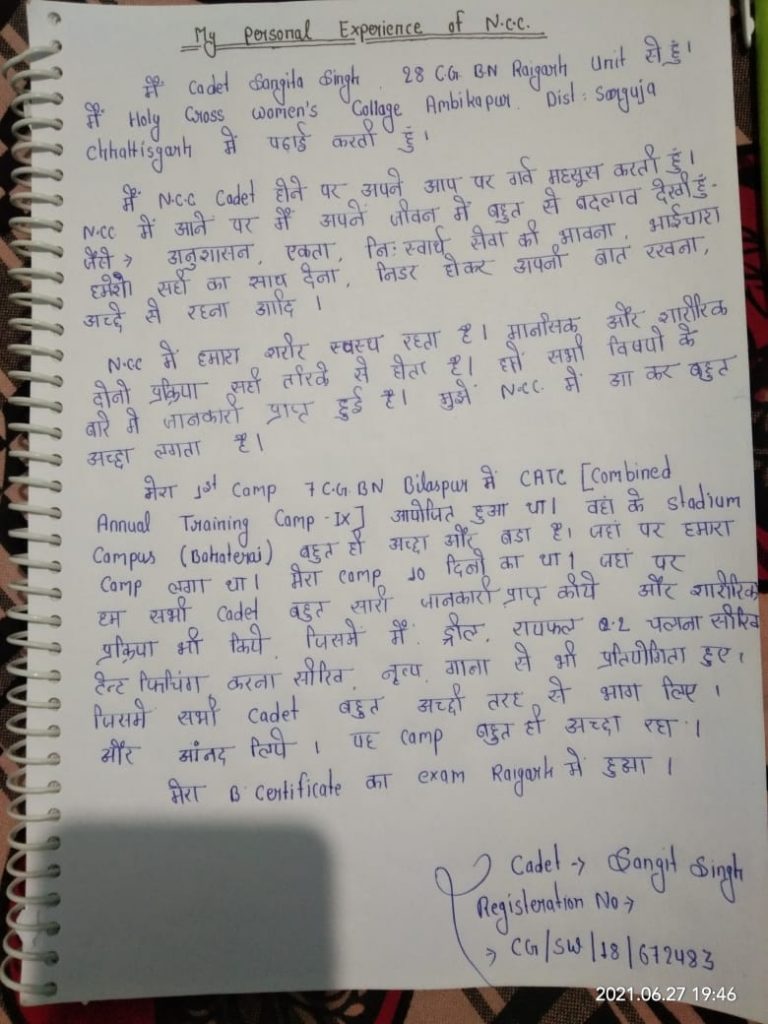 My Personal Experience of N.C.C.
मैं Cadet Sangita Singh. 28 C.G. BN Raigarh Unit से हुं।
मैं Holy Cross Women's Collage Ambikapur. Dist: Sarguja
Chhattisgarh में पढाई करती हुं।
मैं N.C.C Cadet होने पर अपने आप पर गर्व महसूस करती हुं।
N.CC में आने पर मैं अपने जीवन में बहुत से बदलाव देखी हुं.
जैसे → अनुशासन, एकता, नि:स्वार्थ सेवा की भावना, भाईचारा
हमेशा सही का साथ देना, निडर होकर अपनी बात रखना,
अच्छे से रहना आदि।
N.CC में हमारा शरीर स्वस्थ रहता है। मानसिक और शारीरिक
दोनो प्रक्रिया सही तरिके से होता है। हमें सभी विषयो के
बारे में जानकारी प्राप्त हुई है। मुझे N.CC. में आ कर बहुत
अच्छा लगता है।
मेरा 1st Camp 7 C.G. BN Bilaspur में CATC [Combined
Annual Training Camp -IX] आयोजित हुआ था। वहां के Stadium
Campus (Bahaterai) बहुत ही अच्छा और बडा है। जहां पर हमारा
Camp लगा था। मेरा Camp 10 दिनो का था। जहां पर
हम सभी Cadet बहुत सारी जानकारी प्राप्त कीये और शारीरिक
प्रक्रिया भी किये, जिसमें में ड्रील, रायफल 2.2 चलना सीखे
टेन्ट पिचिंग, करना सीखे, नृत्य, गाना से भी प्रतियोगिता हुए।
जिसमें सभी Cadet बहुत अच्छी तरह से भाग लिए।
और आंनद लिये। यह Camp बहुत ही अच्छा रहा।
मेरा B Certificate का exam Raigarh में हुआ।
Cadet → Sangit Singh
Registeration No →
→ CG/SW/18/672483
2021.06.27 19:46